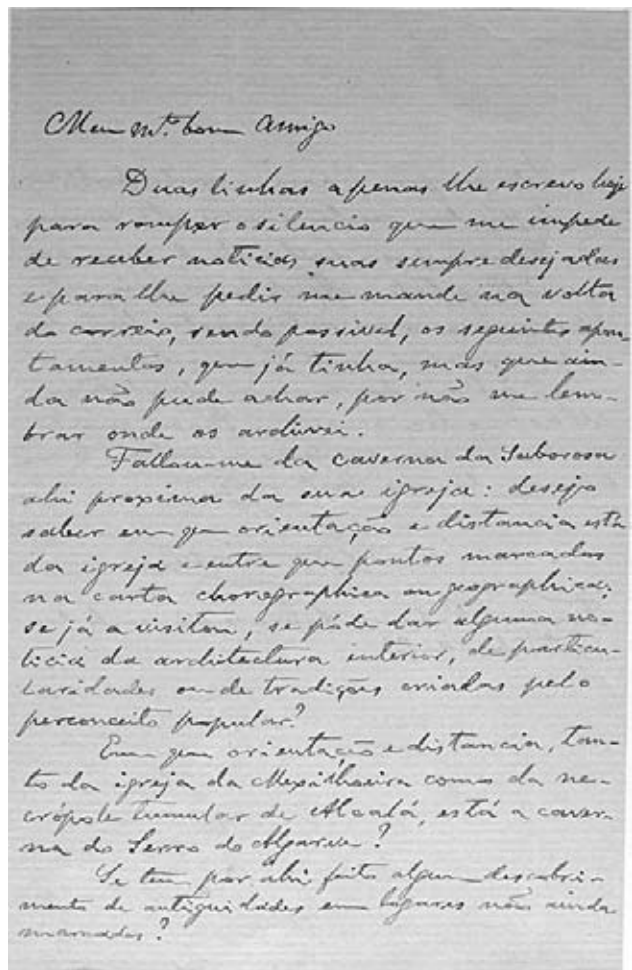 Meu mto. bom Amigo
Duas linhas apenas lhe escrevo hoje
para romper o silencio que me impede
de receber noticias suas sempre desejadas
e para lhe pedir me mande na volta
do correio, sendo possivel, os seguintes apon-
tamentos, que já tinha, mas que ain-
da não pude achar, por não me lem-
brar onde os archivei.
Fallou-me da caverna da
ahi proxima da sua igreja: desejo
saber em que orientação e distancia está
da igreja e entre que pontos marcados
na carta chorographica ou geographica;
se já a visitou, se póde dar alguma no-
ticia da architectura interior, de particu-
laridades ou de tradições criadas pelo
perconceito popular?
Em que orientação e distancia, tan-
to da igreja da Mexilhoeira como da ne-
crópole tumular de Alcalá, está a caver-
na do Serro do Algarve?
Se tem por ahi feito algum descobri-
mento de antiguidades em logares não ainda
marcados?